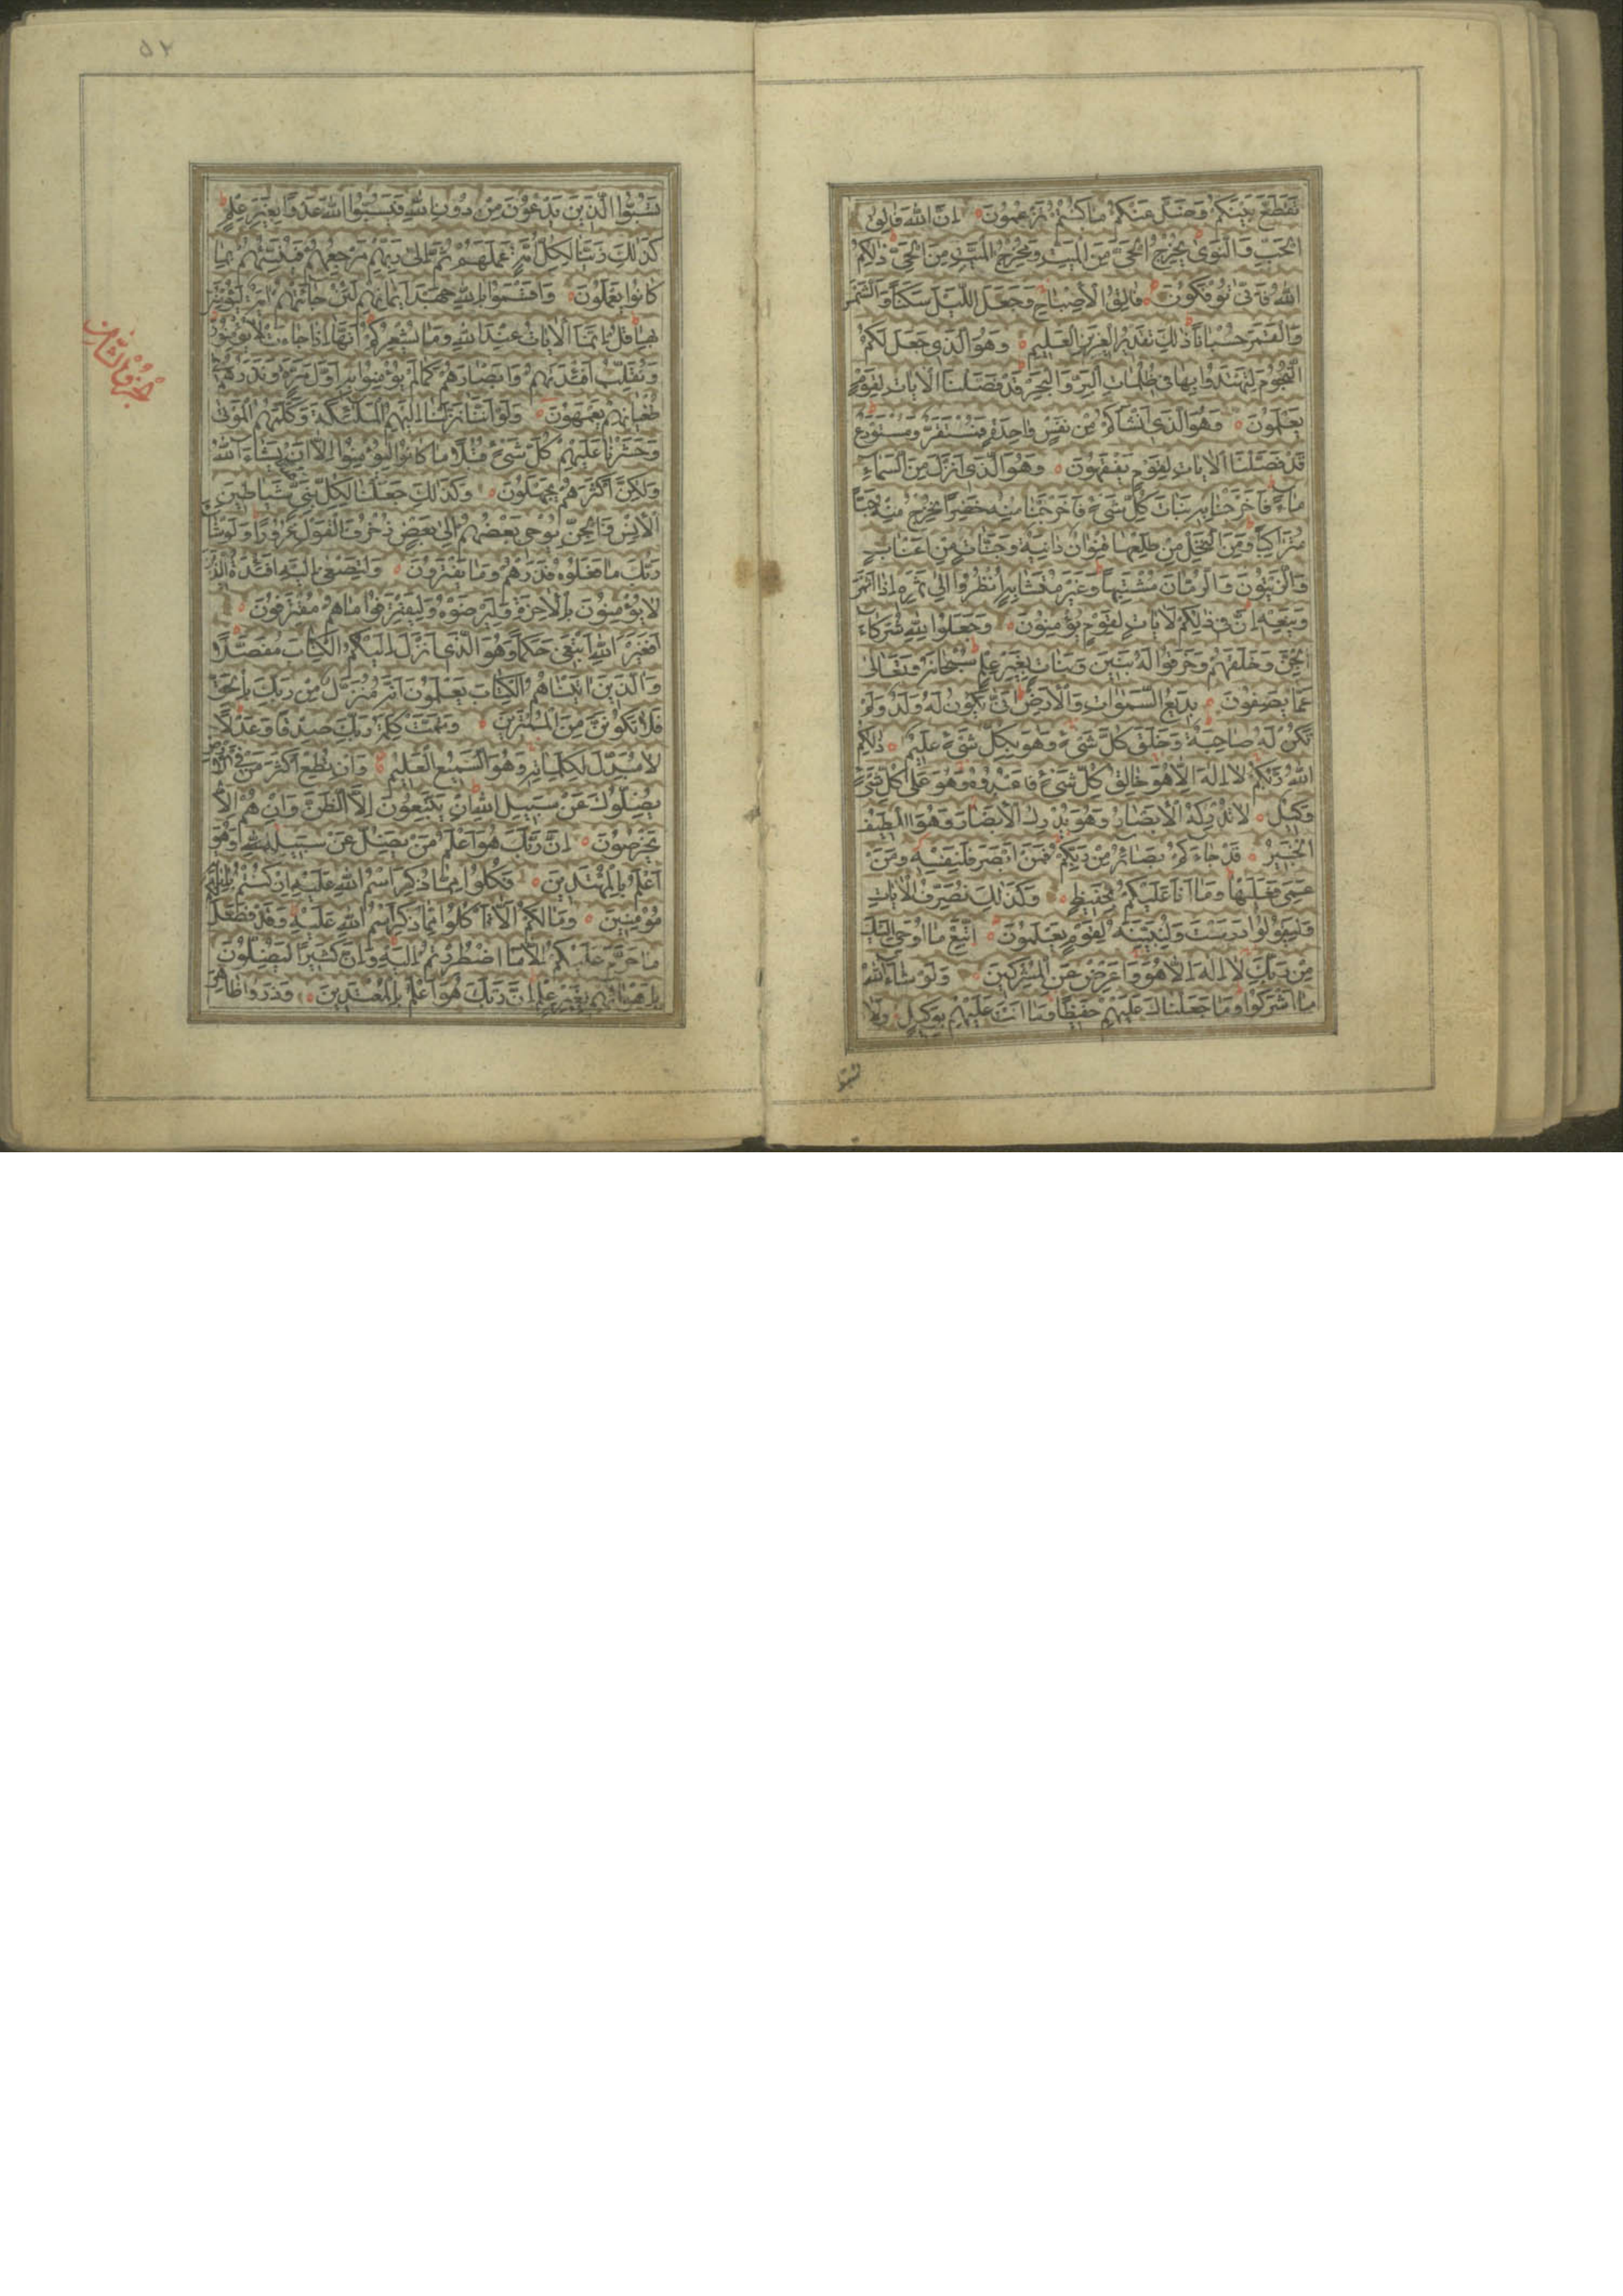 تَقَطَّعَ بَيْنَكُمْ وَضَلَّ عَنْكُمْ مَا كُنْتُمْ تَزْعُمُونَ اِنَّ اللّٰهَ فَالِقُ
الْحَبِّ وَالنَّوٰى يُخْرِجُ الْحَيَّ مِنَ الْمَيِّتِ وَمُخْرِجُ الْمَيِّتِ مِنَ الْحَيِّ ذٰلِكُمُ
اللّٰهُ فَاَنّٰى تُؤْفَكُونَ فَالِقُ الْاِصْبَاحِ وَجَعَلَ اللَّيْلَ سَكَنًا وَالشَّمْسَ
وَالْقَمَرَ حُسْبَانًا ذٰلِكَ تَقْدِيرُ الْعَزِيزِ الْعَلِيمِ وَهُوَ الَّذِي جَعَلَ لَكُمُ
النُّجُومَ لِتَهْتَدُوا بِهَا فِي ظُلُمَاتِ الْبَرِّ وَالْبَحْرِ قَدْ فَصَّلْنَا الْاٰيَاتِ لِقَوْمٍ
يَعْلَمُونَ وَهُوَ الَّذِي اَنْشَاَكُمْ مِنْ نَفْسٍ وَاحِدَةٍ فَمُسْتَقَرٌّ وَمُسْتَوْدَعٌ
قَدْ فَصَّلْنَا الْاٰيَاتِ لِقَوْمٍ يَفْقَهُونَ وَهُوَ الَّذِي اَنْزَلَ مِنَ السَّمَاءِ
مَاءً فَاَخْرَجْنَا بِهِ نَبَاتَ كُلِّ شَيْءٍ فَاَخْرَجْنَا مِنْهُ خَضِرًا نُخْرِجُ مِنْهُ حَبًّا
مُتَرَاكِبًا وَمِنَ النَّخْلِ مِنْ طَلْعِهَا قِنْوَانٌ دَانِيَةٌ وَجَنَّاتٍ مِنْ اَعْنَابٍ
وَالزَّيْتُونَ وَالرُّمَّانَ مُشْتَبِهًا وَغَيْرَ مُتَشَابِهٍ اُنْظُرُوا اِلٰى ثَمَرِهِ اِذَا اَثْمَرَ
وَيَنْعِهِ اِنَّ فِي ذٰلِكُمْ لَاٰيَاتٍ لِقَوْمٍ يُؤْمِنُونَ وَجَعَلُوا لِلّٰهِ شُرَكَاءَ
الْجِنَّ وَخَلَقَهُمْ وَخَرَقُوا لَهُ بَنِينَ وَبَنَاتٍ بِغَيْرِ عِلْمٍ سُبْحَانَهُ وَتَعَالٰى
عَمَّا يَصِفُونَ بَدِيعُ السَّمٰوَاتِ وَالْاَرْضِ اَنّٰى يَكُونُ لَهُ وَلَدٌ وَلَمْ
تَكُنْ لَهُ صَاحِبَةٌ وَخَلَقَ كُلَّ شَيْءٍ وَهُوَ بِكُلِّ شَيْءٍ عَلِيمٌ ذٰلِكُمُ
اللّٰهُ رَبُّكُمْ لَا اِلٰهَ اِلَّا هُوَ خَالِقُ كُلِّ شَيْءٍ فَاعْبُدُوهُ وَهُوَ عَلٰى كُلِّ شَيْءٍ
وَكِيلٌ لَا تُدْرِكُهُ الْاَبْصَارُ وَهُوَ يُدْرِكُ الْاَبْصَارَ وَهُوَ اللَّطِيفُ
الْخَبِيرُ قَدْ جَاءَكُمْ بَصَائِرُ مِنْ رَبِّكُمْ فَمَنْ اَبْصَرَ فَلِنَفْسِهِ وَمَنْ
عَمِيَ فَعَلَيْهَا وَمَا اَنَا عَلَيْكُمْ بِحَفِيظٍ وَكَذٰلِكَ نُصَرِّفُ الْاٰيَاتِ
وَلِيَقُولُوا دَرَسْتَ وَلِنُبَيِّنَهُ لِقَوْمٍ يَعْلَمُونَ اتَّبِعْ مَا اُوحِيَ اِلَيْكَ
مِنْ رَبِّكَ لَا اِلٰهَ اِلَّا هُوَ وَاَعْرِضْ عَنِ الْمُشْرِكِينَ وَلَوْ شَاءَ اللّٰهُ
مَا اَشْرَكُوا وَمَا جَعَلْنَاكَ عَلَيْهِمْ حَفِيظًا وَمَا اَنْتَ عَلَيْهِمْ بِوَكِيلٍ وَلَا
تسبوا
٥٢
تَسُبُّوا الَّذِينَ يَدْعُونَ مِنْ دُونِ اللّٰهِ فَيَسُبُّوا اللّٰهَ عَدْوًا بِغَيْرِ عِلْمٍ
كَذٰلِكَ زَيَّنَّا لِكُلِّ اُمَّةٍ عَمَلَهُمْ ثُمَّ اِلٰى رَبِّهِمْ مَرْجِعُهُمْ فَيُنَبِّئُهُمْ بِمَا
كَانُوا يَعْمَلُونَ وَاَقْسَمُوا بِاللّٰهِ جَهْدَ اَيْمَانِهِمْ لَئِنْ جَاءَتْهُمْ اٰيَةٌ لَيُؤْمِنُنَّ
بِهَا قُلْ اِنَّمَا الْاٰيَاتُ عِنْدَ اللّٰهِ وَمَا يُشْعِرُكُمْ اَنَّهَا اِذَا جَاءَتْ لَا يُؤْمِنُونَ
وَنُقَلِّبُ اَفْئِدَتَهُمْ وَاَبْصَارَهُمْ كَمَا لَمْ يُؤْمِنُوا بِهِ اَوَّلَ مَرَّةٍ وَنَذَرُهُمْ فِي
طُغْيَانِهِمْ يَعْمَهُونَ وَلَوْ اَنَّنَا نَزَّلْنَا اِلَيْهِمُ الْمَلٰئِكَةَ وَكَلَّمَهُمُ الْمَوْتٰى
وَحَشَرْنَا عَلَيْهِمْ كُلَّ شَيْءٍ قُبُلًا مَا كَانُوا لِيُؤْمِنُوا اِلَّا اَنْ يَشَاءَ اللّٰهُ
وَلٰكِنَّ اَكْثَرَهُمْ يَجْهَلُونَ وَكَذٰلِكَ جَعَلْنَا لِكُلِّ نَبِيٍّ عَدُوًّا شَيَاطِينَ
الْاِنْسِ وَالْجِنِّ يُوحِي بَعْضُهُمْ اِلٰى بَعْضٍ زُخْرُفَ الْقَوْلِ غُرُورًا وَلَوْ شَاءَ
رَبُّكَ مَا فَعَلُوهُ فَذَرْهُمْ وَمَا يَفْتَرُونَ وَلِتَصْغٰى اِلَيْهِ اَفْئِدَةُ الَّذِينَ
لَا يُؤْمِنُونَ بِالْاٰخِرَةِ وَلِيَرْضَوْهُ وَلِيَقْتَرِفُوا مَا هُمْ مُقْتَرِفُونَ
اَفَغَيْرَ اللّٰهِ اَبْتَغِي حَكَمًا وَهُوَ الَّذِي اَنْزَلَ اِلَيْكُمُ الْكِتَابَ مُفَصَّلًا
وَالَّذِينَ اٰتَيْنَاهُمُ الْكِتَابَ يَعْلَمُونَ اَنَّهُ مُنَزَّلٌ مِنْ رَبِّكَ بِالْحَقِّ
فَلَا تَكُونَنَّ مِنَ الْمُمْتَرِينَ وَتَمَّتْ كَلِمَةُ رَبِّكَ صِدْقًا وَعَدْلًا
لَا مُبَدِّلَ لِكَلِمَاتِهِ وَهُوَ السَّمِيعُ الْعَلِيمُ وَاِنْ تُطِعْ اَكْثَرَ مَنْ فِي الْاَرْضِ
يُضِلُّوكَ عَنْ سَبِيلِ اللّٰهِ اِنْ يَتَّبِعُونَ اِلَّا الظَّنَّ وَاِنْ هُمْ اِلَّا
يَخْرُصُونَ اِنَّ رَبَّكَ هُوَ اَعْلَمُ مَنْ يَضِلُّ عَنْ سَبِيلِهِ وَهُوَ
اَعْلَمُ بِالْمُهْتَدِينَ فَكُلُوا مِمَّا ذُكِرَ اسْمُ اللّٰهِ عَلَيْهِ اِنْ كُنْتُمْ بِاٰيَاتِهِ
مُؤْمِنِينَ وَمَا لَكُمْ اَلَّا تَاْكُلُوا مِمَّا ذُكِرَ اسْمُ اللّٰهِ عَلَيْهِ وَقَدْ فَصَّلَ
مَا حَرَّمَ عَلَيْكُمْ اِلَّا مَا اضْطُرِرْتُمْ اِلَيْهِ وَاِنَّ كَثِيرًا لَيُضِلُّونَ
بِاَهْوَائِهِمْ بِغَيْرِ عِلْمٍ اِنَّ رَبَّكَ هُوَ اَعْلَمُ بِالْمُعْتَدِينَ وَذَرُوا ظَاهِرَ
جُزْوُ الثَّامِن